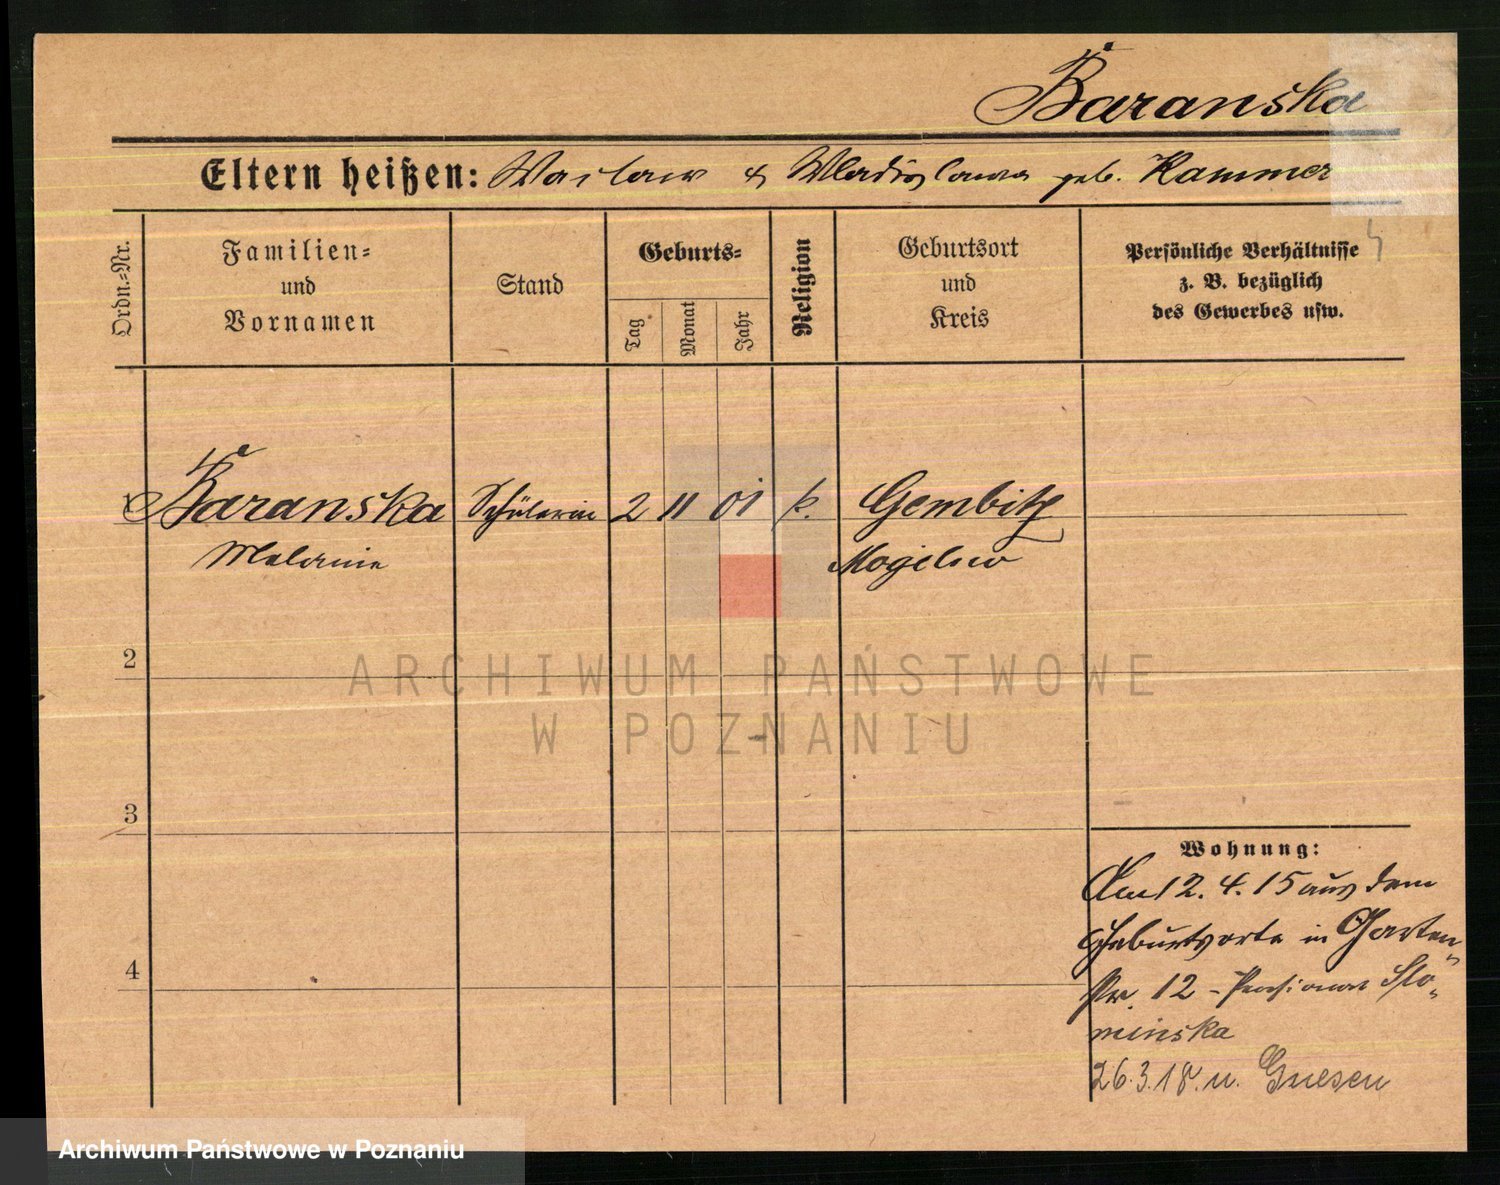 Baranska
Eltern heißen: Waclaw & Wladislawa geb. Kammer
Ordn.-Nr.
Familien-
und
Vornamen
Stand
Geburts-
Tag
Monat
Jahr
Religion
Geburtsort
und
Kreis
Persönliche Verhältnisse
z. B. bezüglich
des Gewerbes usw.
1 Baranska Schülerin 2 11 01 k. Gembitz
Melanie Mogilno
2
3
4
Wohnung:
Am 12.4.15 aus dem
Geburtsorte in Garten-
str. 12 - Pensionat Slo-
minska
26.3.18. n. Gnesen
ARCHIWUM PAŃSTWOWE
W POZNANIU
Archiwum Państwowe w Poznaniu